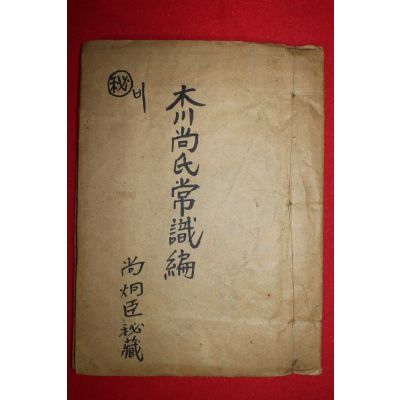 ㊙ 비
木川尙氏常識編
尙炯臣秘藏